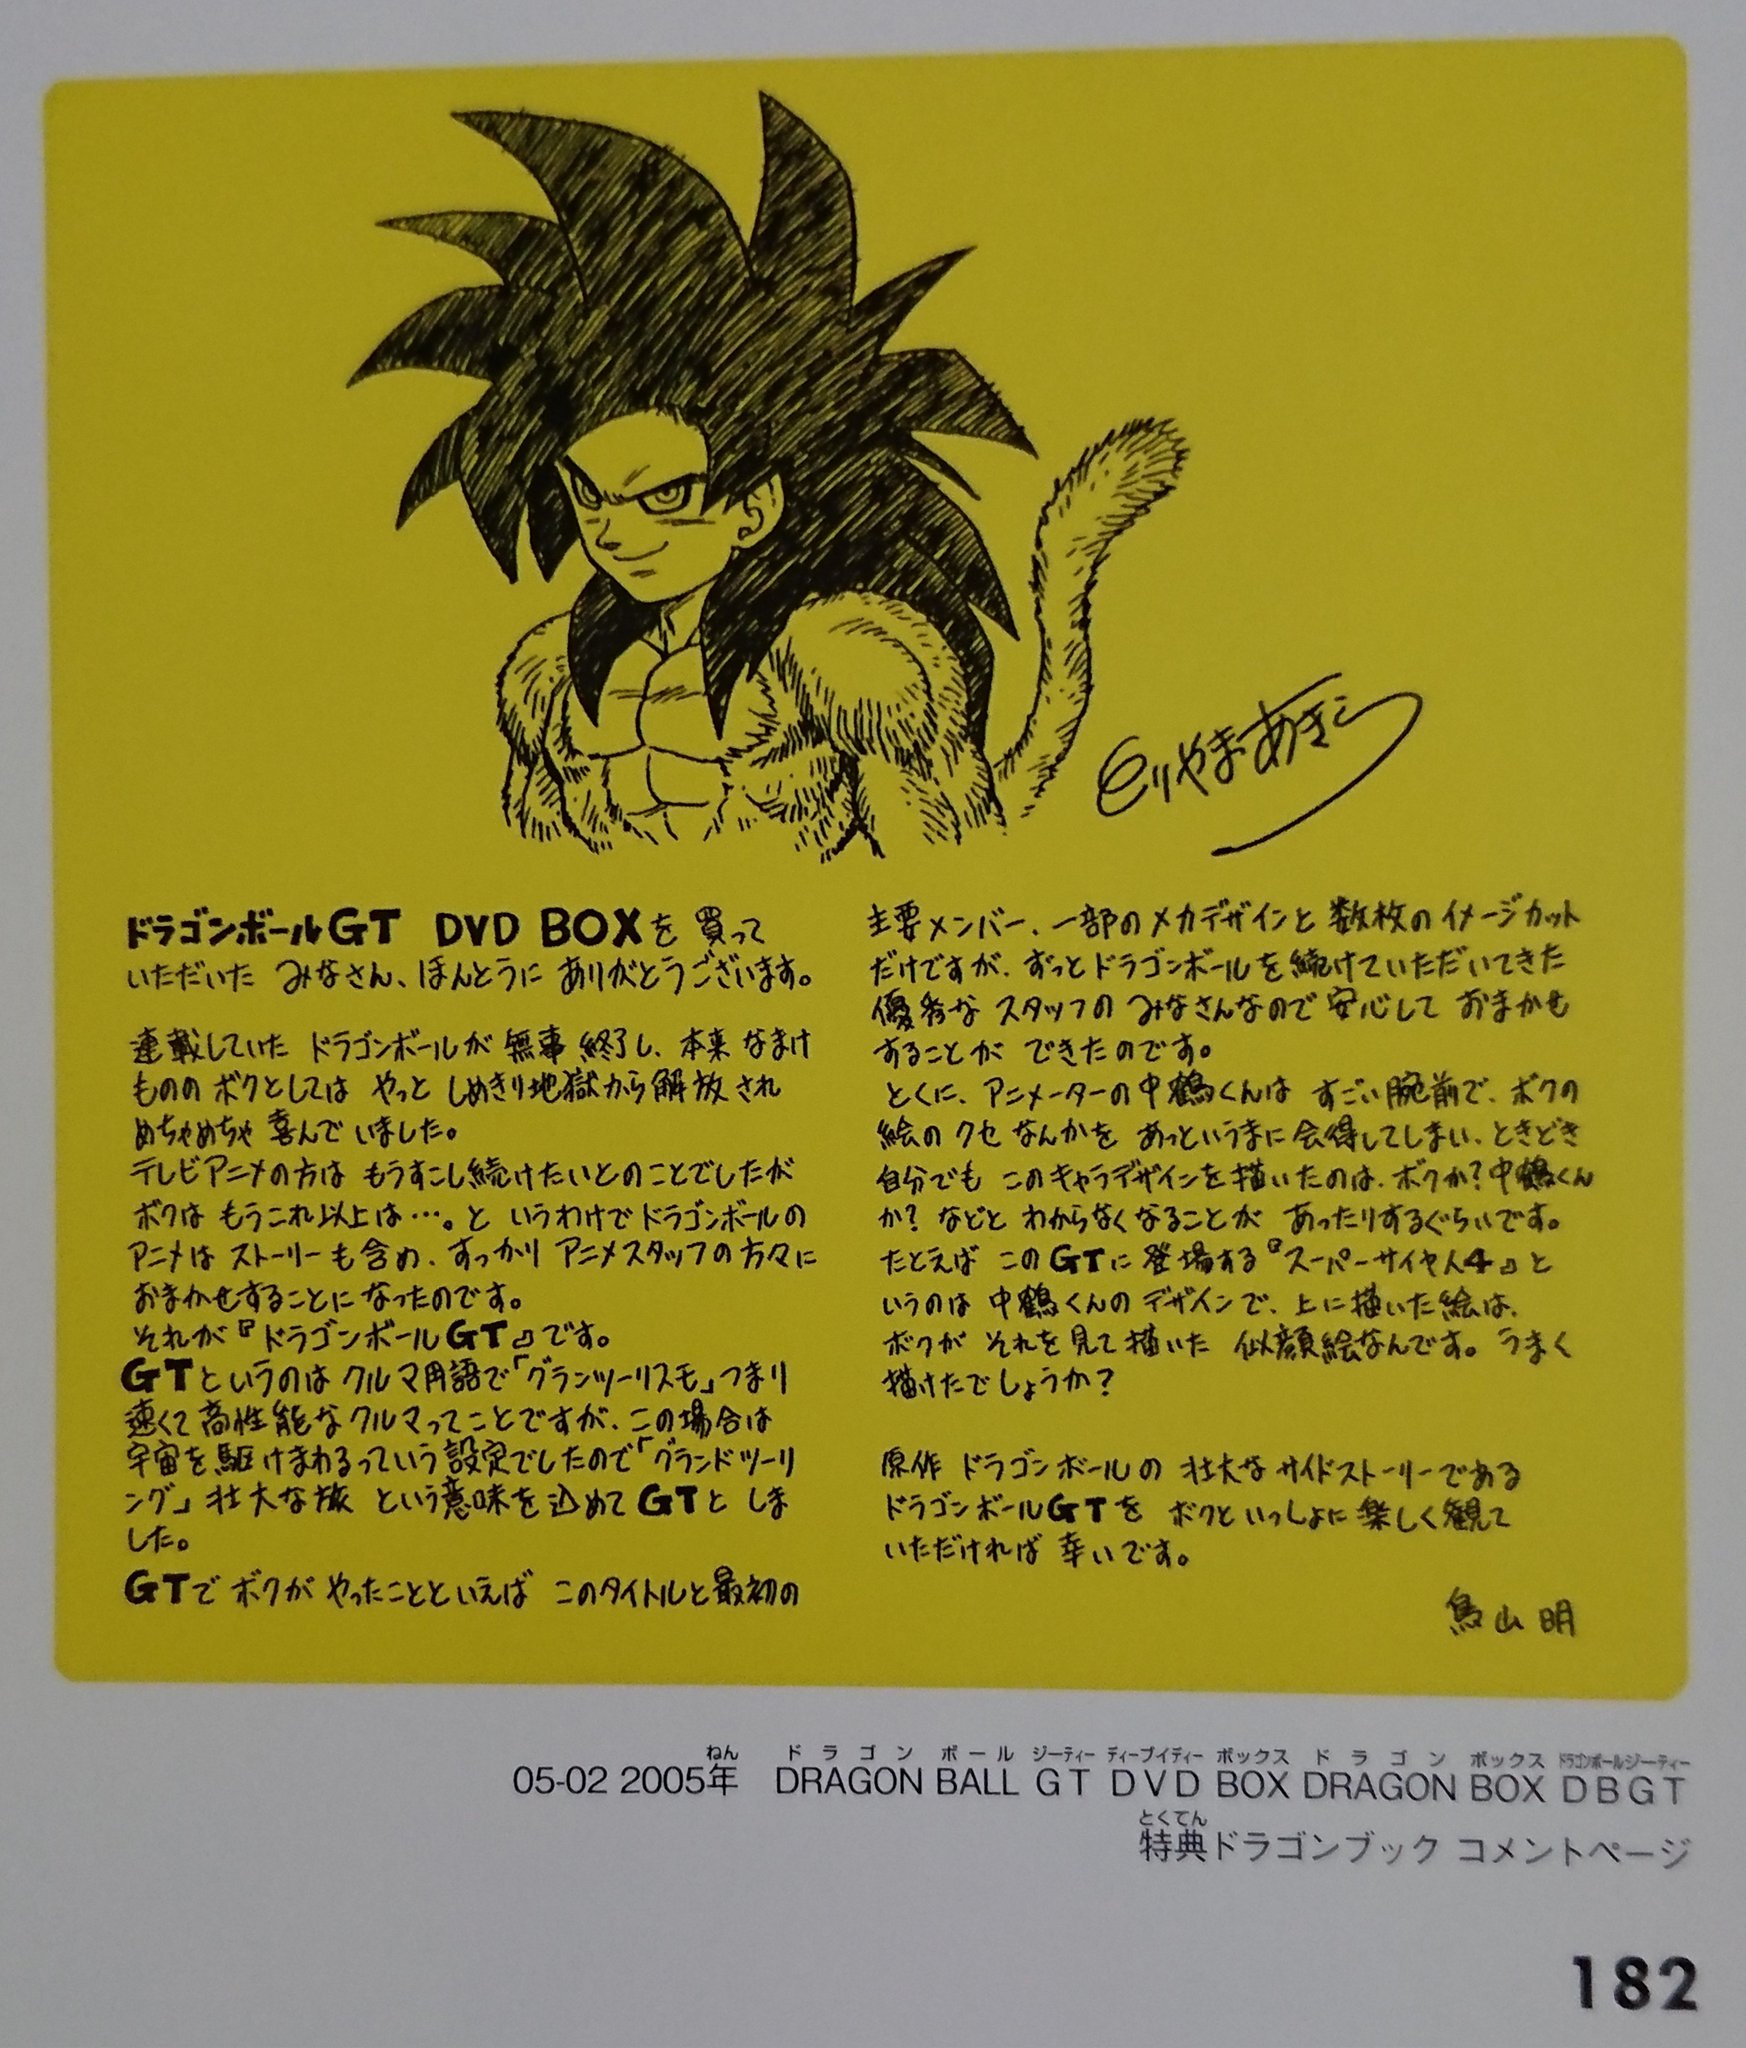 とりやまあきら
ドラゴンボールGT DVD BOXを買って
いただいた みなさん、ほんとうに ありがとうございます。
連載していた ドラゴンボールが 無事 終了し、本来 なまけ
ものの ボクとしては やっと しめきり地獄から解放され
めちゃめちゃ 喜んで いました。
テレビアニメの方は もうすこし続けたいとのことでしたが
ボクは もうこれ以上は…。と いうわけで ドラゴンボールの
アニメは ストーリーも含め、すっかり アニメスタッフの方々に
おまかせすることに なったのです。
それが『ドラゴンボールGT』です。
GTというのは クルマ用語で「グランツーリスモ」つまり
速くて高性能なクルマってことですが、この場合は
宇宙を駆けまわるっていう設定でしたので「グランドツーリ
ング」壮大な旅 という意味を込めて GTと しま
した。
GTで ボクが やったことといえば このタイトルと最初の
主要メンバー、一部のメカデザインと 数枚のイメージカット
だけですが、ずっとドラゴンボールを続けていただいてきた
優秀な スタッフの みなさんなので 安心して おまかせ
することが できたのです。
とくに、アニメーターの中鶴くんは すごい腕前で、ボクの
絵のクセ なんかを あっというまに 会得してしまい、ときどき
自分でも このキャラデザインを描いたのは、ボクか?中鶴くん
か? などと わからなくなることが あったりするぐらいです。
たとえば このGTに登場する『スーパーサイヤ人4』と
いうのは 中鶴くんの デザインで、上に描いた絵は、
ボクが それを見て描いた 似顔絵なんです。うまく
描けたでしょうか?
原作 ドラゴンボールの 壮大なサイドストーリーである
ドラゴンボールGTを ボクといっしょに楽しく観て
いただければ 幸いです。
鳥山明
ねん ドラゴン ボール ジーティー ディーブイディー ボックス ドラゴン ボックス ドラゴンボールジーティー
05-02 2005年 DRAGON BALL GT DVD BOX DRAGON BOX DBGT
とくてん
特典ドラゴンブック コメントページ
182